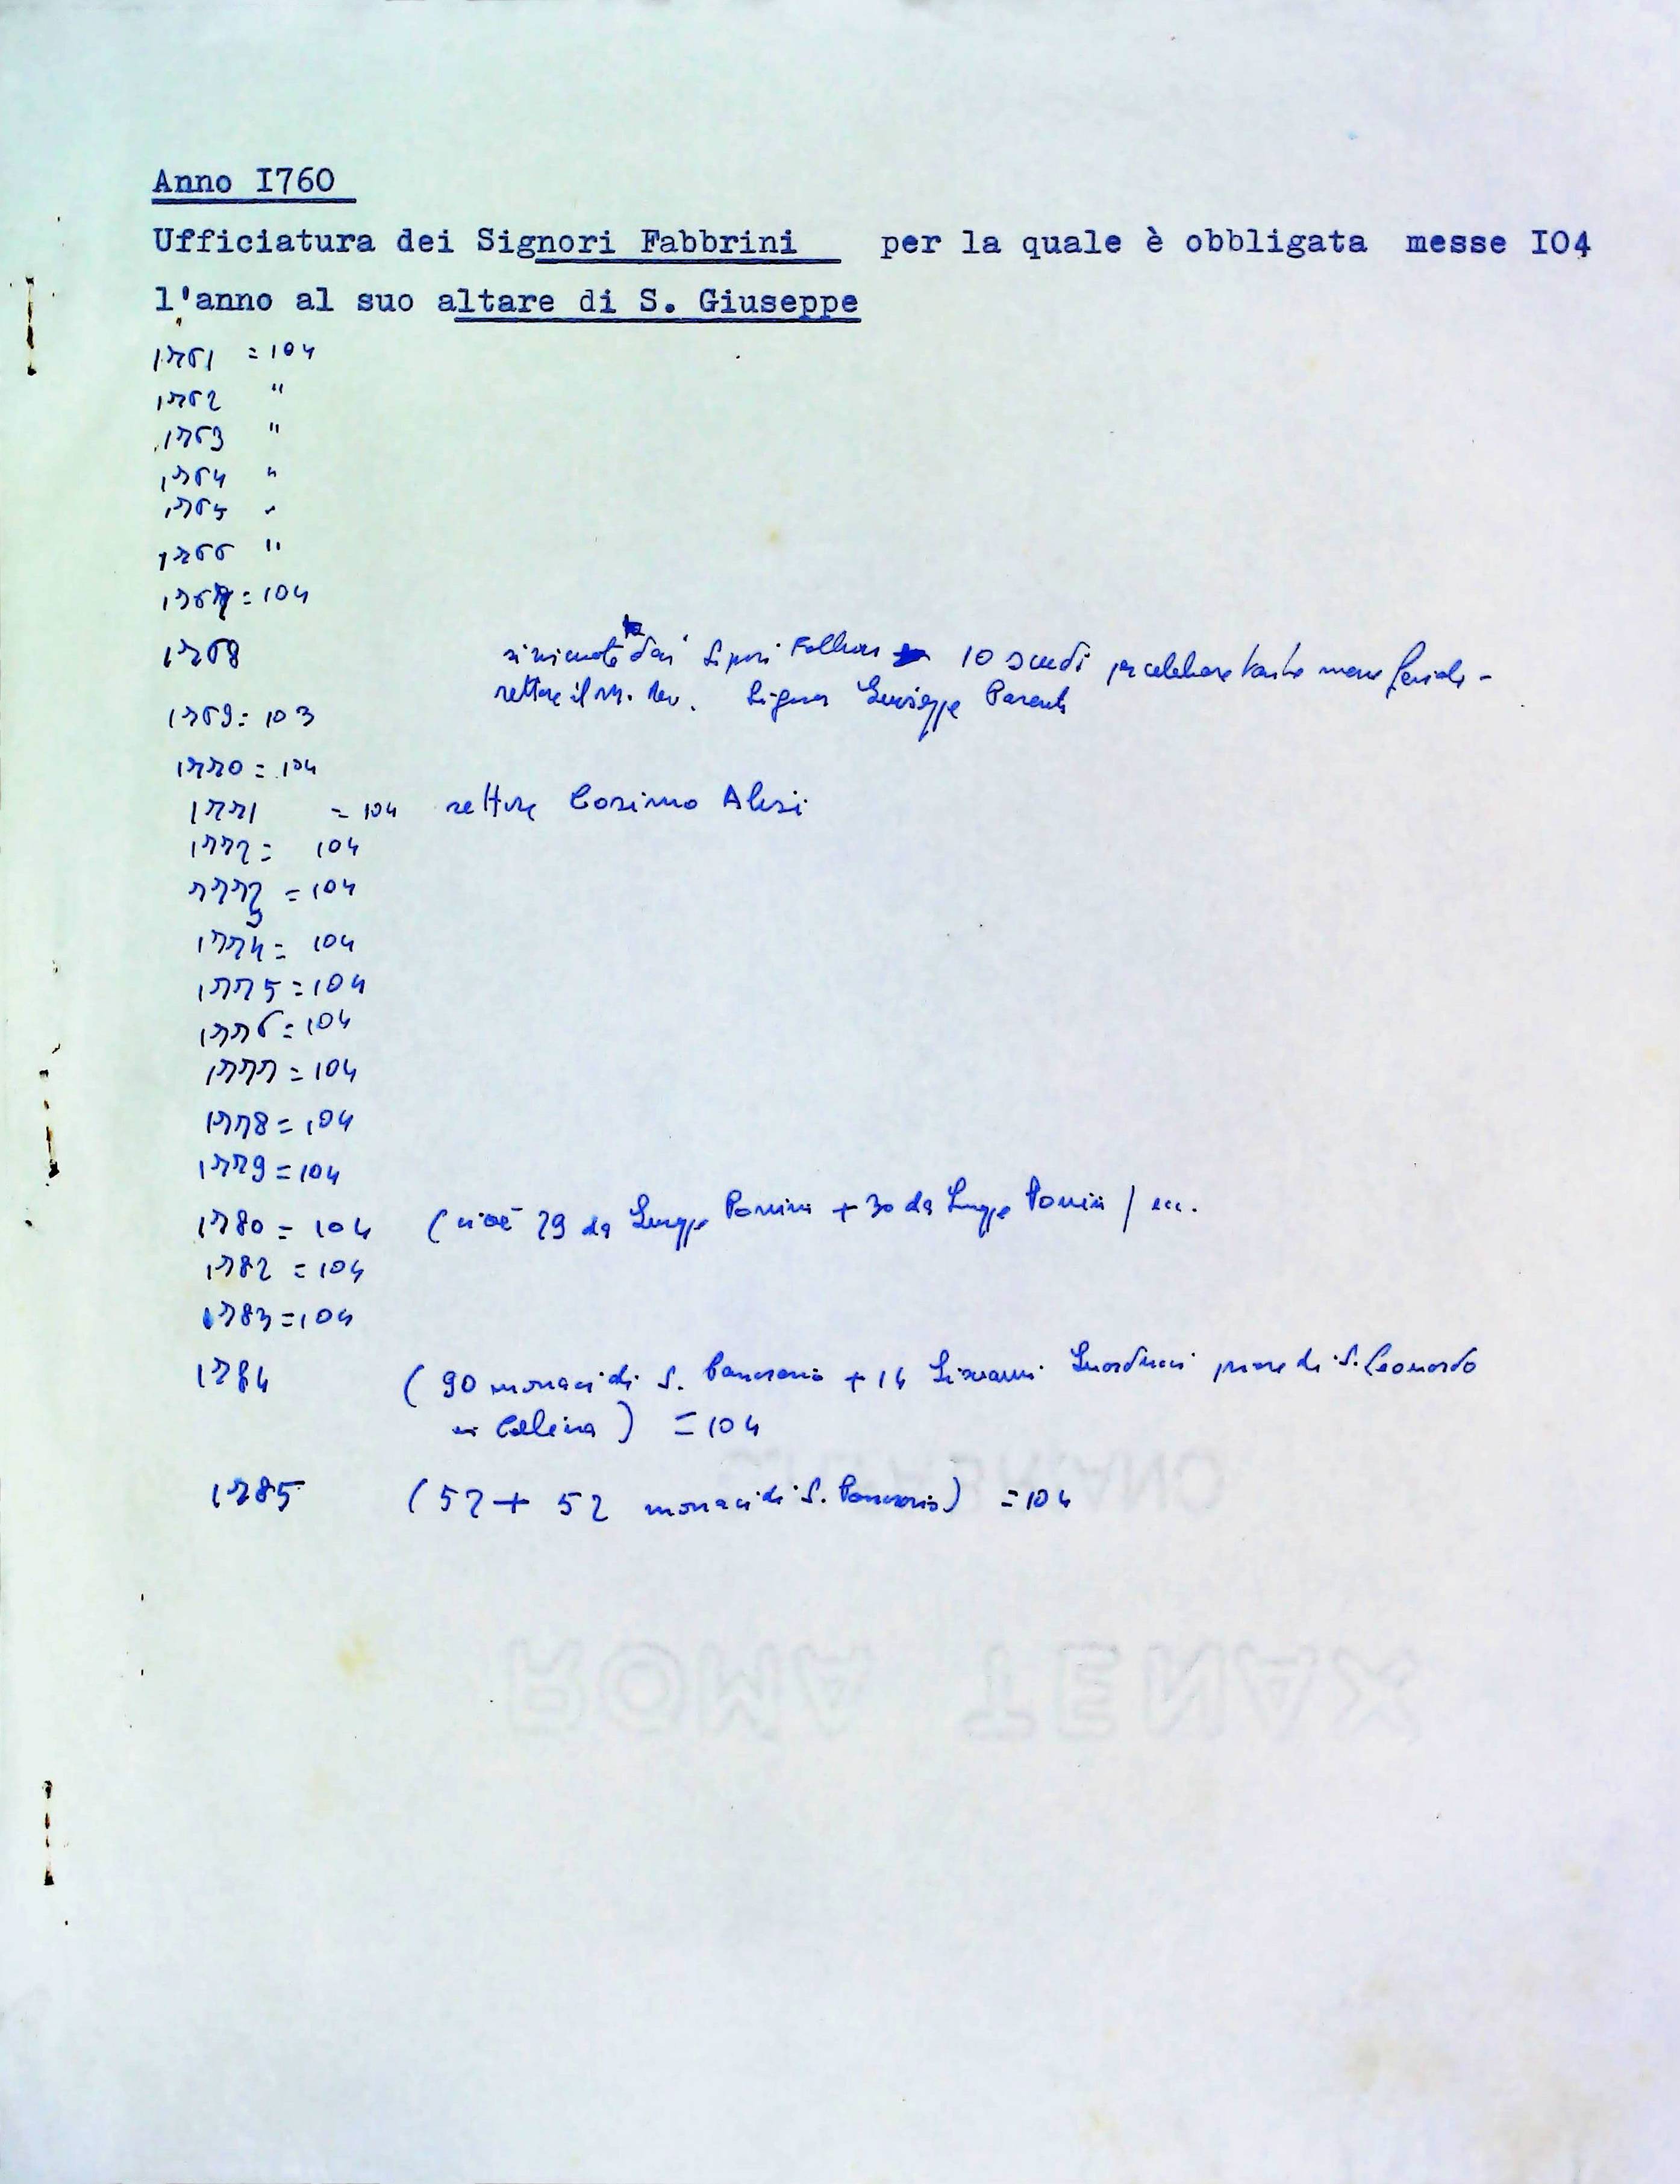 Anno I760
Ufficiatura dei Signori Fabbrini per la quale è obbligata messe IO4
l'anno al suo altare di S. Giuseppe
1761 = 104
1762 "
1763 "
1764 "
1765 "
1766 "
1767 = 104
1768 dai Signori 10 scudi per celebrare tante messe
rettore il M. Rev. Signor Giuseppe Parenti
1769 = 103
1770 = 104
1771 = 104 rettore Cosimo Alesi
1772 = 104
1773 = 104
1774 = 104
1775 = 104
1776 = 104
1777 = 104
1778 = 104
1779 = 104
1780 = 104 (cioè 29 da Giuseppe + 30 da Giuseppe / ecc.
1782 = 104
1783 = 104
1784 (90 monaci di S. Pancrazio + 14 Giovanni priore di S. Leonardo
in Collina) = 104
1785 (52 + 52 monaci di S. Pancrazio) = 104
FABRIANO
ROMA TENAX